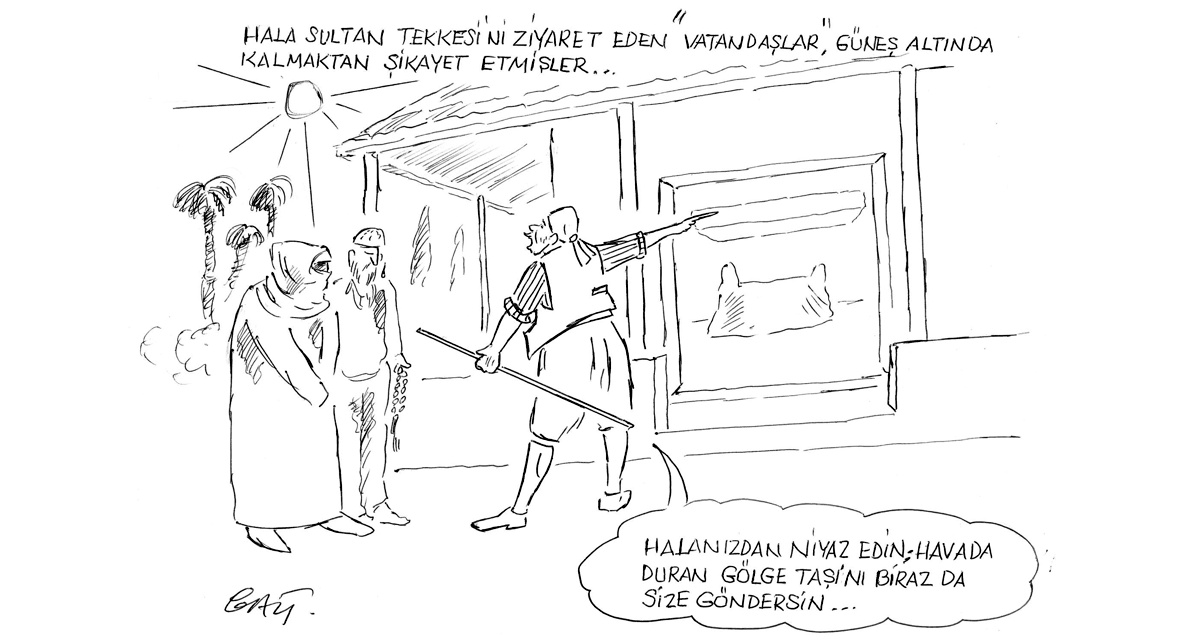 HALA SULTAN TEKKESİ'Nİ ZİYARET EDEN "VATANDAŞLAR", GÜNEŞ ALTINDA
KALMAKTAN ŞİKAYET ETMİŞLER...
HALANIZDAN NİYAZ EDİN, HAVADA
DURAN GÖLGE TAŞI'NI BİRAZ DA
SİZE GÖNDERSİN...